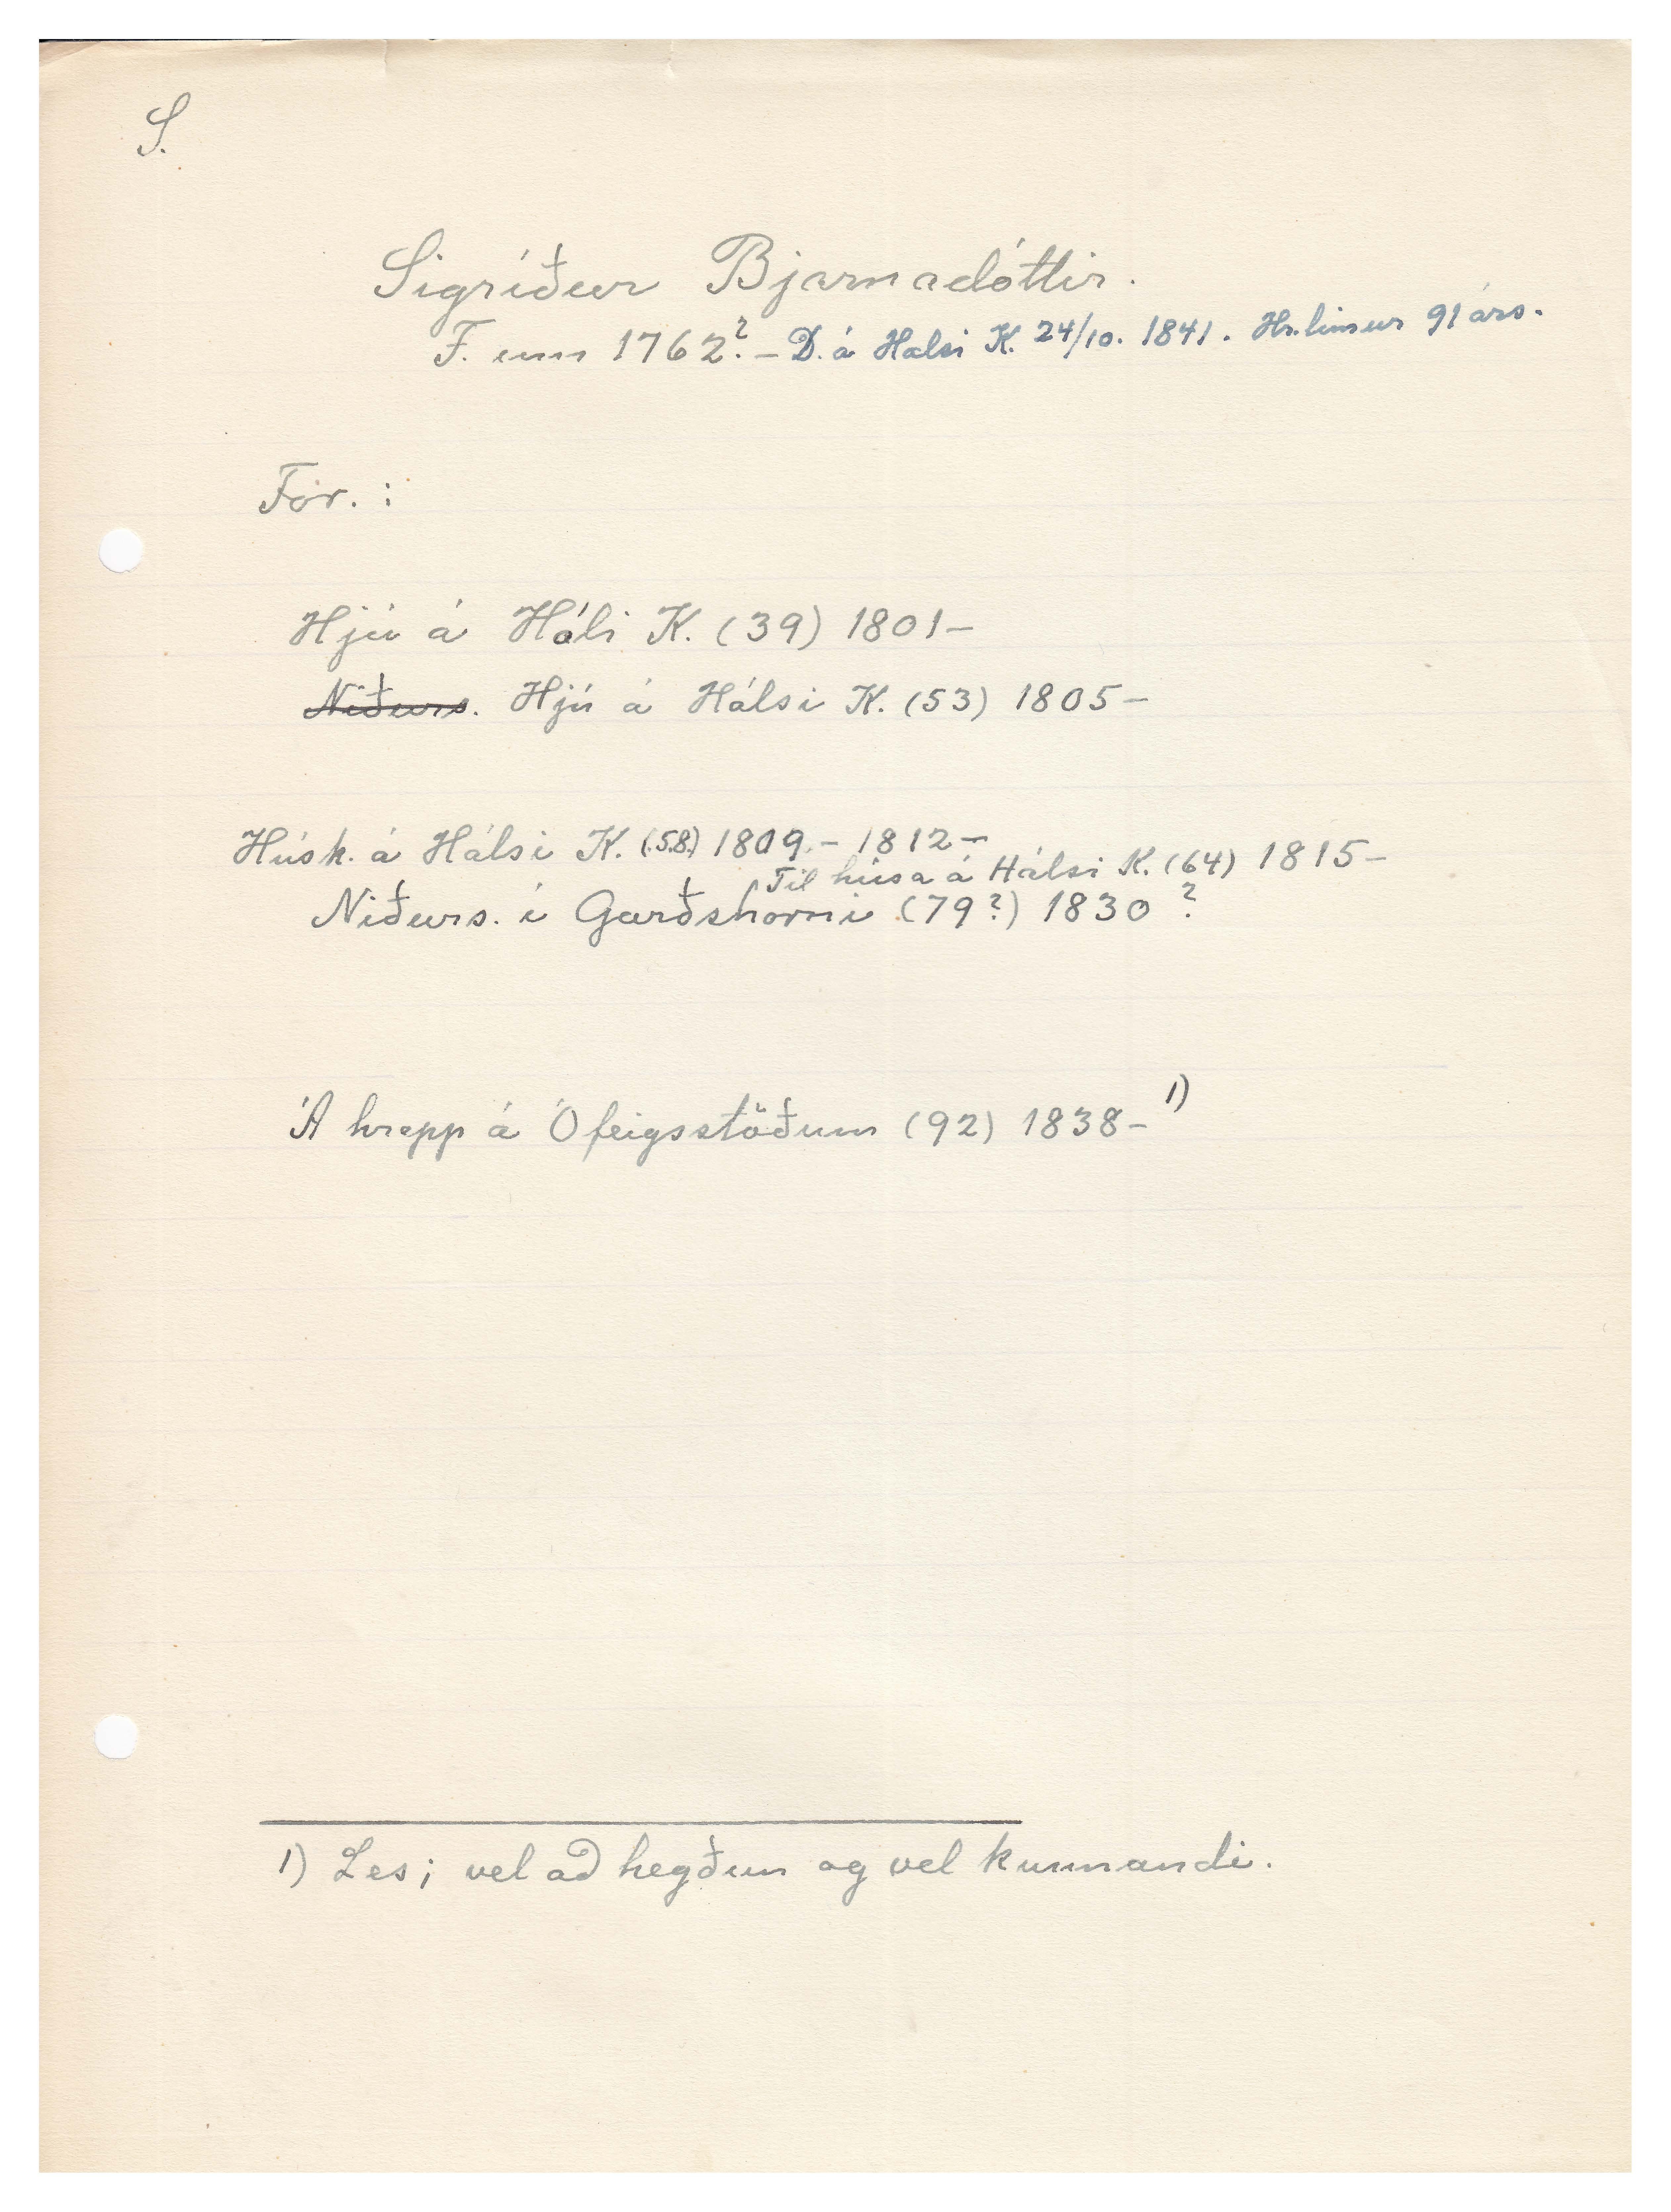 S.
Sigríður Bjarnadóttir.
F. um 1762? – D. á Halsi K. 24/10. 1841. Hr.limur 91 árs.
For. :
Hjú á Hóli K. (39) 1801–
Niðurs. Hjú á Hálsi K. (53) 1805–
Húsk. á Hálsi K. (58) 1809 – 1812 –
Til húsa á Hálsi K. (64) 1815–
Niðurs. í Garðshorni (79?) 1830 ?
Á hrepp á Ófeigsstöðum (92) 1838– 1)
1) Les; vel að hegðun og vel kunnandi.